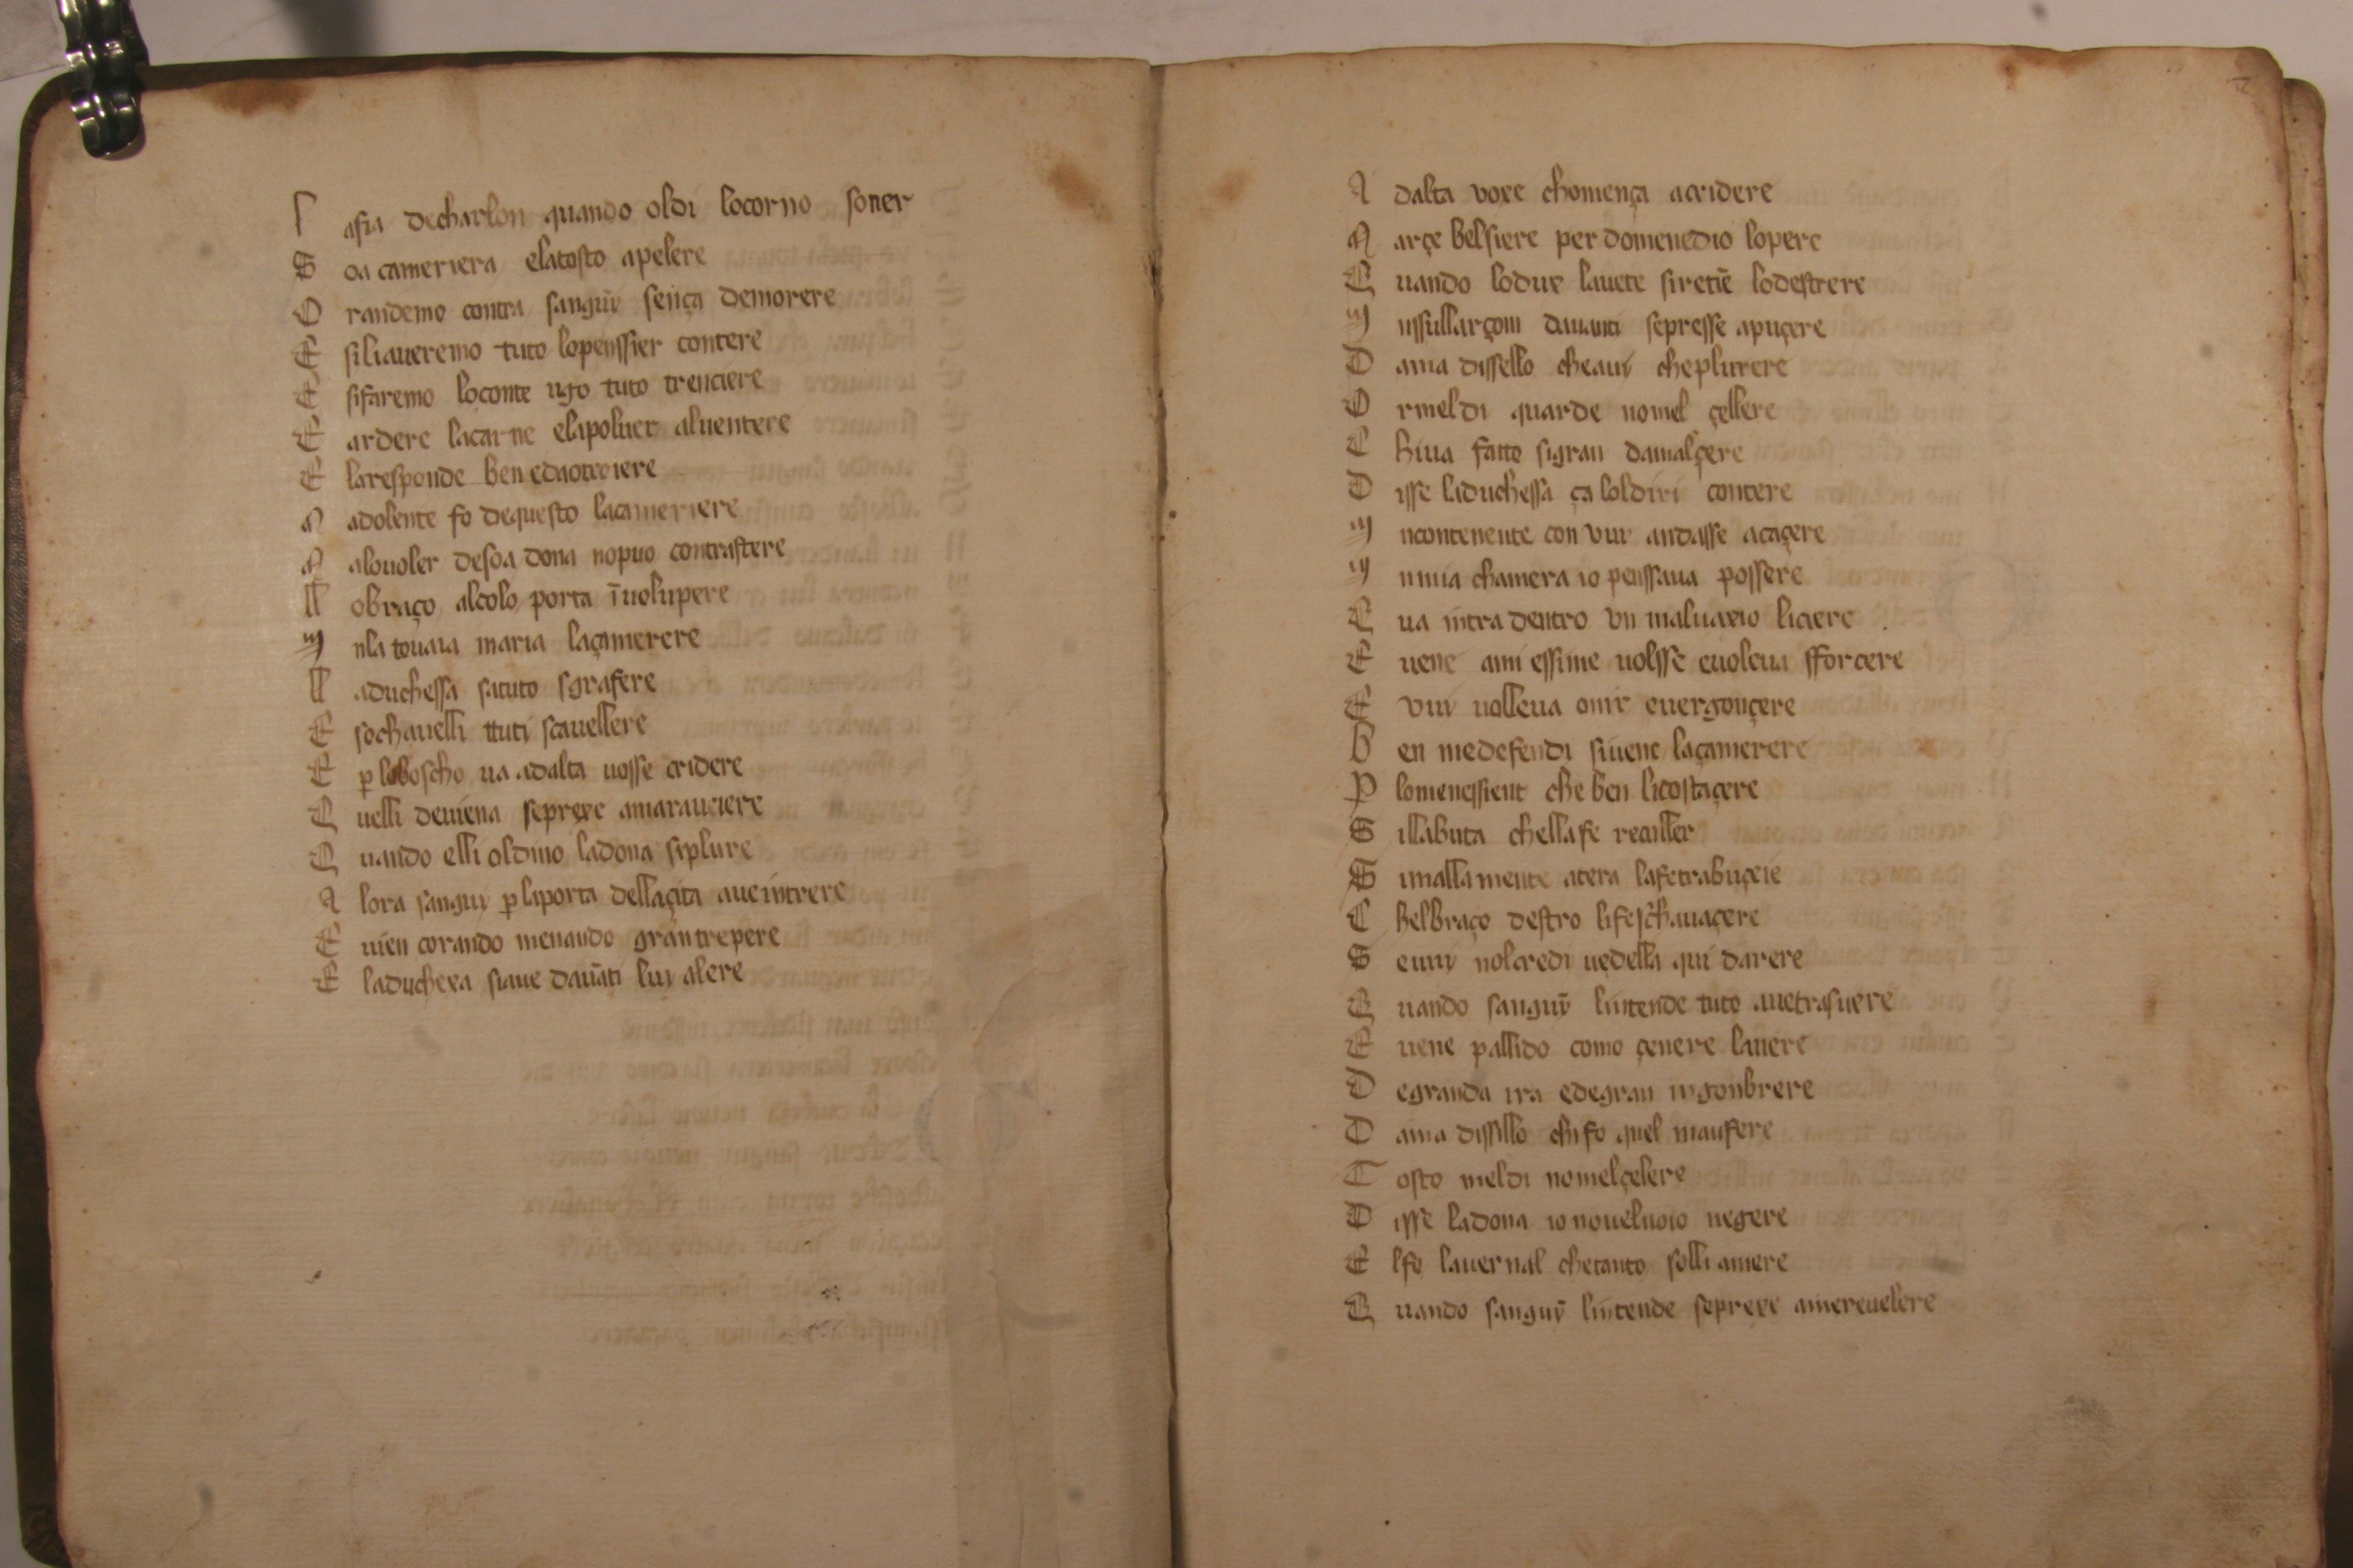 l asia decharlon quando oldi locorno soner
S oa cameriera elatosto apelere
O randemo contra sanguĩ sença demorere
E siliaveremo tuto lopenssier contere
E sifaremo loconte ugo tuto trenciere
E ardere lacarne elapoluer aluentere
E laresponde ben edaotroiere
M adolente fo dequesto lacameriere
M alouoler desoa dona nopuo contrastere
ll obraço alcolo porta ĩuolupere
In la touaia maria laçamerere
ll aduchessa satuto sgrafere
E sochauelli ttuti scauellere
E ꝑ loboscho ua adalta uosse cridere
Q uelli deuiena seprexe amaraueiere
Q uando elli oldino ladona siplure
A lora sanguĩ ꝑ laporta dellaçita aueintrere
E uien corando menando gran trepere
E laduchexa siaue dauãti luy alere
A dalta voxe chomença acridere
M arçe belsiere per domenedio lopere
Q uando lodux lauete siretiẽ lodestrere
I nssullarçom dauanti sepresse apuçere
D ama dissello cheauy cheplurere
O rmeldi guarde nomel çellere
C hiua fatto sigran damalçere
D isse laduchessa ça loldiri contere
I ncontenente con vuy andasse acaçere
I nmia chamera io penssaua possere
E ua intra dentro vn maluaxio liciere
E uene ami essime uolsse euoleua sforcere
E vuy uolleua onir euergonçere
B en medefendi siuene laçamerere
P lomenessient che ben licostaçere
S illabuta chellafe
S imallamente atera lafetrabuçere
C helbraço destro lifeschauaçere
S euuy nolcredi uedella qui darere
Q uando sanguỹ lintende tuto auetrasuere
E uene pallido como çenere lauere
D egranda ira edegran ingonbrere
D ama dissillo chifo quel maufere
T osto meldi nomelçelere
D isse ladona io noueluoio negere
E lfo lauernal chetanto solli amere
Q uando sanguỹ lintende seprexe amereuelere